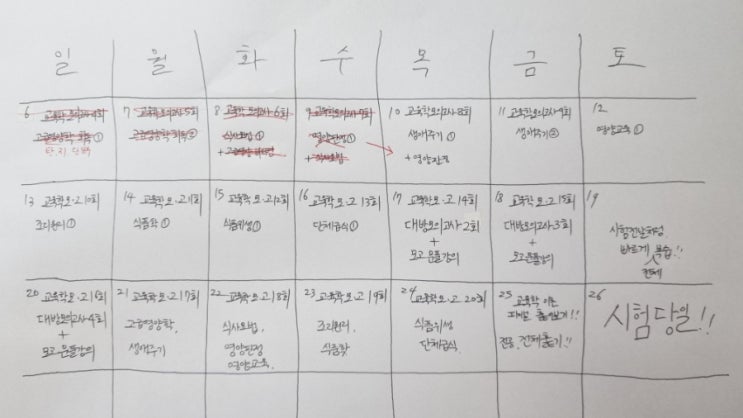 일 월 화 수 목 금 토
6 교육학 모의고사 4회
고급영양학 회독 ①
탄.지.단백
7 교육학모의고사 5회
고급영양학 회독 ②
8 교육학 모의고사 6회
식사요법 ①
+ 고급영양학
9 교육학모의고사 7회
영양판정 ①
+ 식사요법
10 교육학모의고사 8회
생애주기 ①
+ 영양판정
11 교육학모의고사 9회
생애주기 ②
12
영양교육 ①
13 교육학모.고 10회
조리원리 ①
14 교육학 모.고 11회
식품학 ①
15 교육학 모.고 12회
식품위생 ①
16 교육학 모.고 13회
단체급식 ①
17 교육학 모.고 14회
대방모의고사 2회
+
모고 문풀강의
18 교육학 모.고 15회
대방모의고사 3회
+
모고문풀강의
19
시험전날처럼
빠르게 복습!!
전체
20 교육학모.고 16회
대방모의고사 4회
+
모고 문풀강의
21 교육학모.고 17회
고급영양학,
생애주기
22 교육학모.고 18회
식사요법,
영양판정
영양교육.
23 교육학모.고 19회
조리원리,
식품학
24 교육학모.고 20회
식품위생
단체급식
25 교육학 이론
훑어보기!!
전공 전체훑기!!
26
시험당일!!